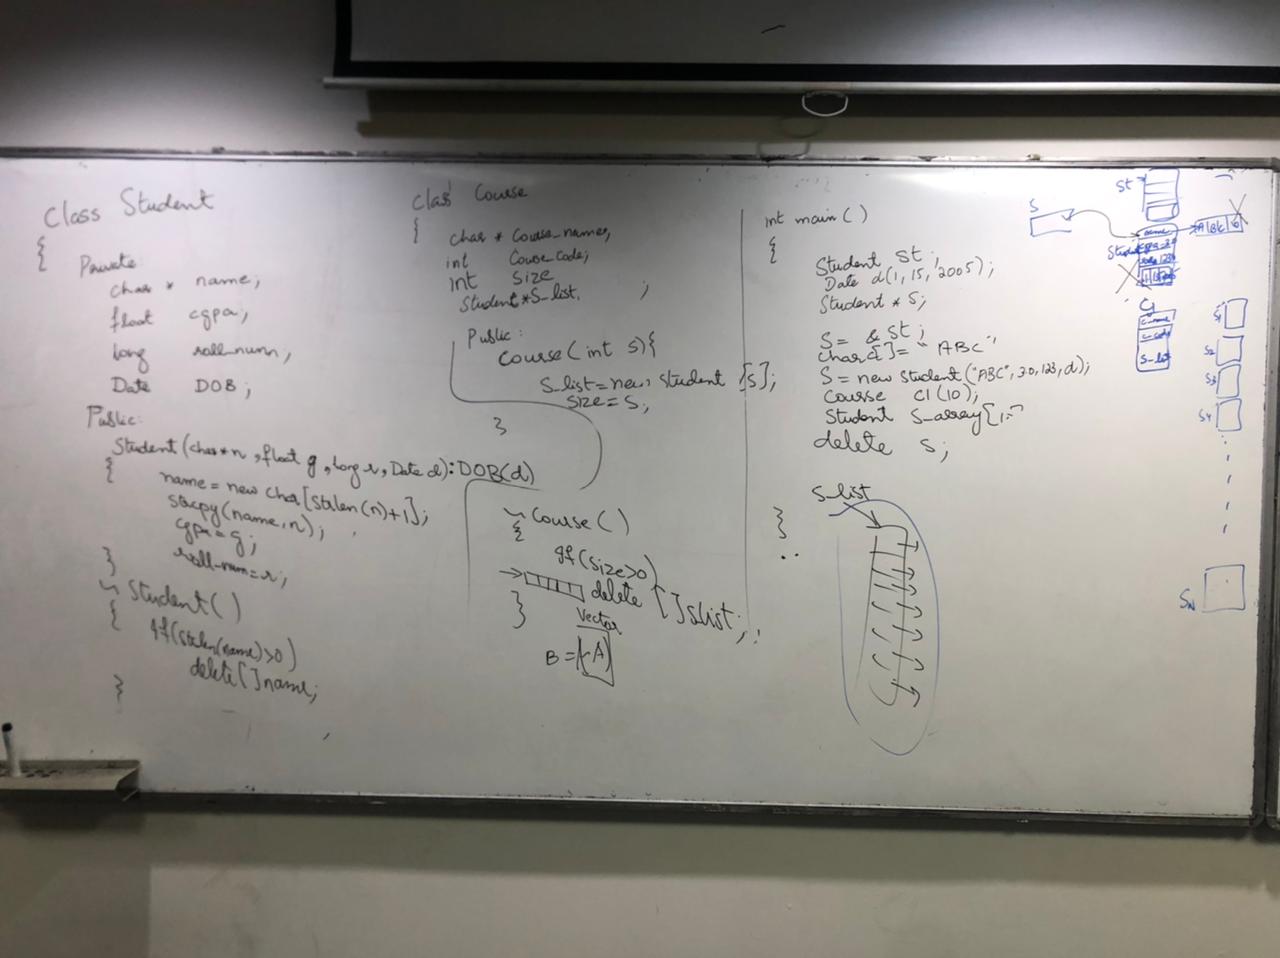 Class Student
{
Private:
char * name;
float cgpa;
long roll_num;
Date DOB;
Public:
Student(char*n, float g, long r, Date d): DOB(d)
{
name = new char[strlen(n)+1];
strcpy(name, n);
cgpa = g;
roll_num = r;
}
~ Student()
{
if(strlen(name)>0)
delete[]name;
}
class Course
{
char * Course_name;
int Course_code;
int Size
Student*S_list, ;
Public:
Course(int s){
S_list=new student [s];
Size = S;
}
~ Course()
{
if(size>0)
delete []slist;
}
Vector
B = (-A)
int main()
{
Student St;
Date d(1, 15, 2005);
Student * S;
S = & St;
char []= "ABC";
S = new student("ABC", 3.0, 123, d);
Course C1(10);
Student S_array[
delete S;
}
S_list
St
S
Student
name
A B C \0
C1
c-name
c-code
S-list
S1
S2
S3
S4
SN